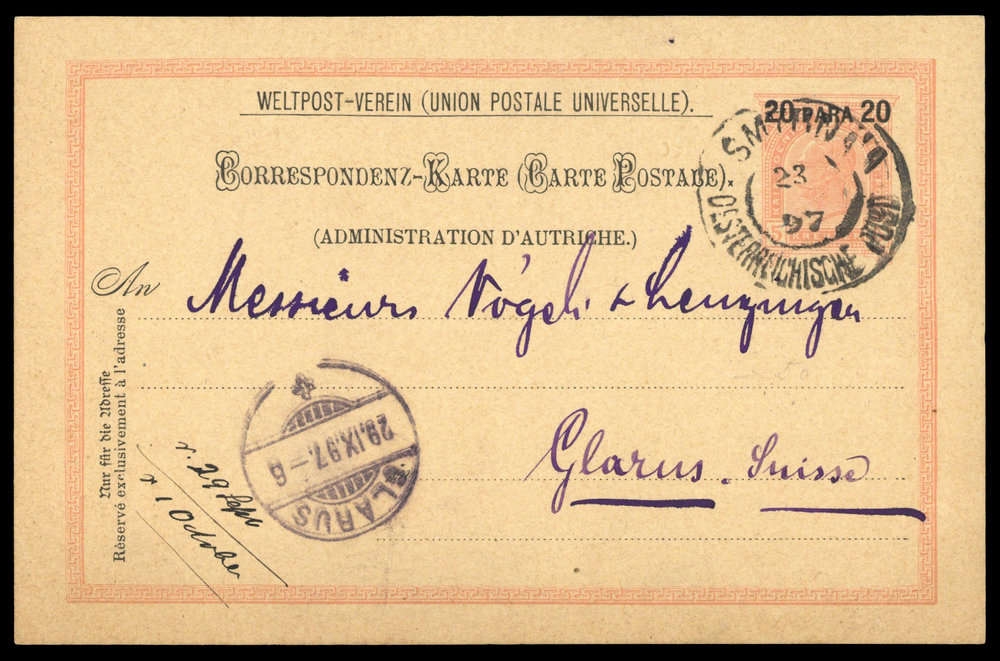 WELTPOST-VEREIN (UNION POSTALE UNIVERSELLE).
20 PARA 20
CORRESPONDENZ-KARTE (CARTE POSTALE).
(ADMINISTRATION D'AUTRICHE.)
23
97
OESTERREICHISCHE
An Messieurs Vögeli & Lenzinger
Glarus. Suisse
29.IX.97.-6
GLARUS
Nur für die Adresse
Réservé exclusivement à l'adresse
r. 29 Sept
r 1 October